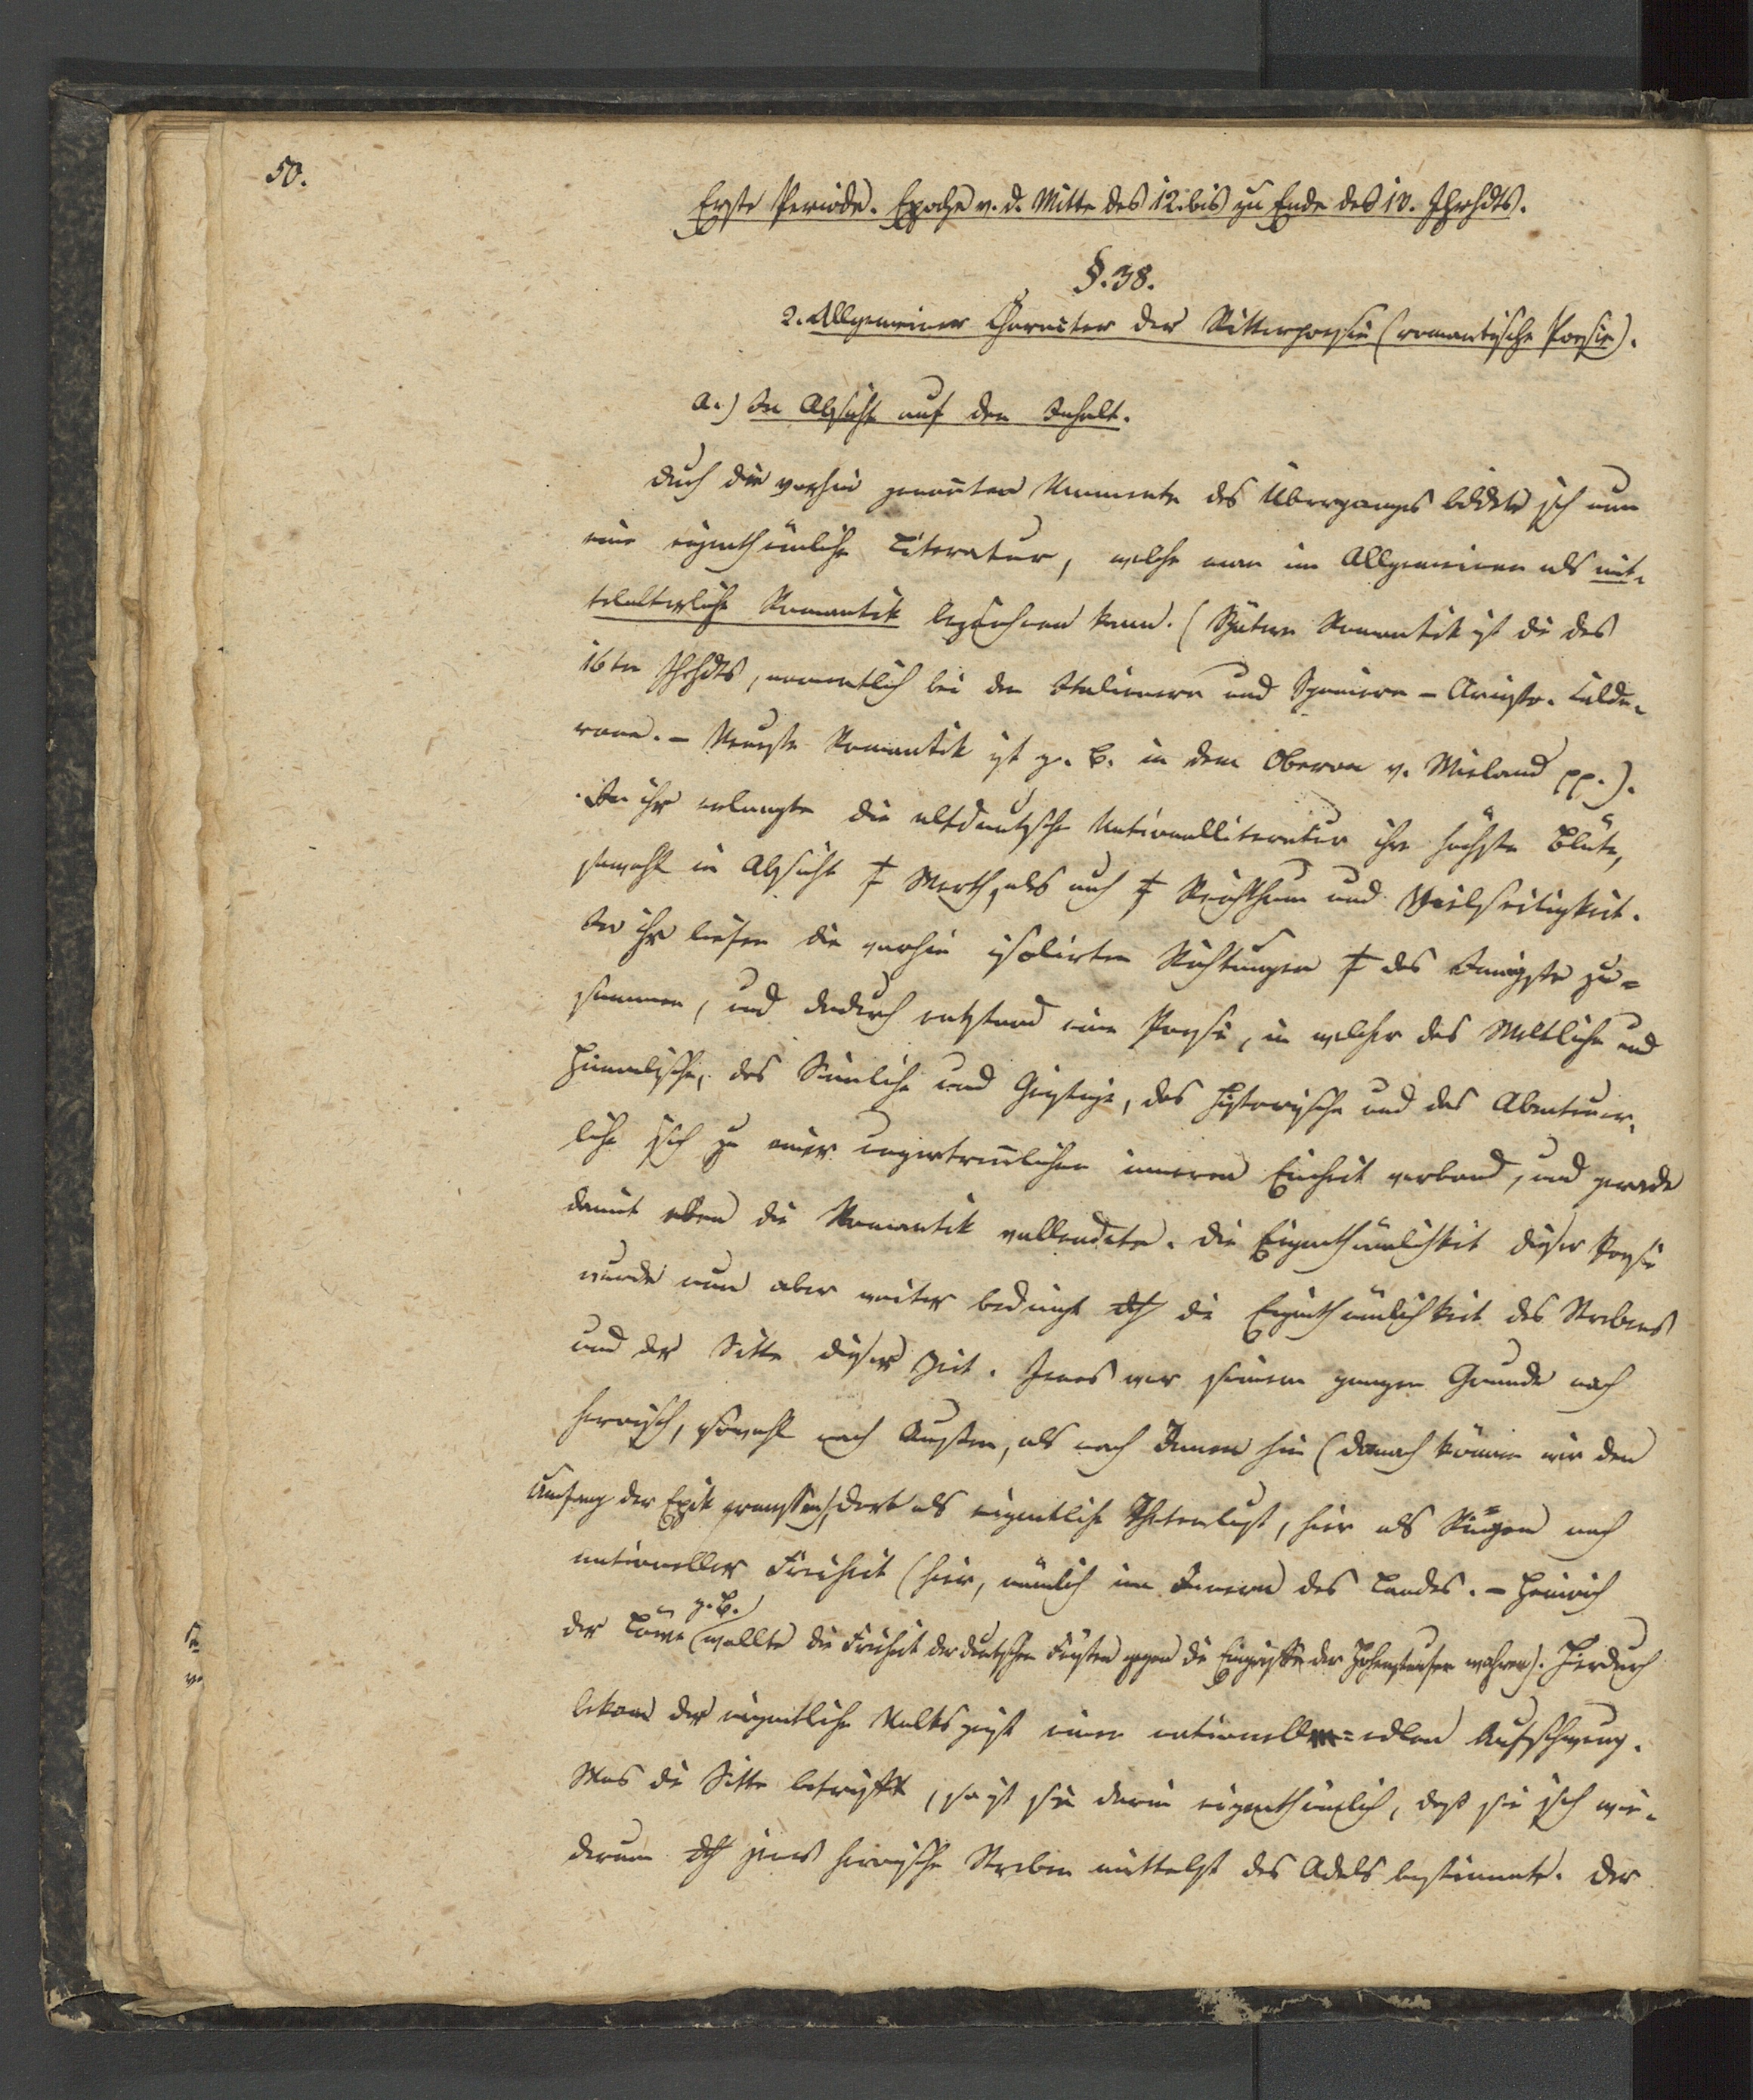 50.
Erste Periode. Epoche v. d. Mitte des 12. bis zu Ende des 13. Jhrhdts.
§. 38.
2. Allgemeiner Character der Ritterpoesie (romantische Poesie).
a.) In Absicht auf den Inhalt.
Durch die vorhin genañten Momente des Überganges bildete sich nun
eine eigenthümliche Literatur, welche man im Allgemeinen als mit-
telalterliche Romantik bezeichnen kann. (Spätere Romantik ist die des
16ten Jhrhdts, namentlich bei den Italienern und Spaniern – Ariosto. Calde-
rone. – Neueste Romantik ist z. B. in dem Oberon v. Wieland pp.).
In ihr erlangte die altdeutsche Nationalliteratur ihre höchste Blüte,
sowohl in Absicht ‡ Werth, als auch ‡ Reichthum und Vielseitigkeit.
In ihr liefen die vorhin isolirten Richtungen ‡ das Innigste zu=
sammen, und dadurch entstand eine Poesie, in welcher das Weltliche und
Himmlische, das Siñliche und Geistige, das Historische und das Abenteuer-
liche sich zu einer unzertreñlichen inneren Einheit verband, und gerade
damit eben die Romantik vollendete. Die Eigenthümlichkeit dieser Poesie
wurde nun aber weiter bedingt dch die Eigenthümlichkeit des Strebens
und der Sitte dieser Zeit. Jenes war seinem ganzen Grunde nach
heroisch, sowohl nach Außen, als nach Innen hin (danach können wir den
Umfang der Epik ermessen), dort als eigentliche Thatenlust, hier als Ringen nach
nationeller Freiheit (hier, nämlich im Innern des Landes. – Heinrich
der Löwe z. B. wollte die Freiheit der deutschen Fürsten gegen die Eingriffe der Hohenstaufen wahren). Hierdurch
bekam der eigentliche Volksgeist einen nationell=edlen Aufschwung.
Was die Sitte betrifft, so ist sie darin eigenthümlich, daß sie sich wie-
derum dch jenes heroische Streben mittelst des Adels bestimmte. Der